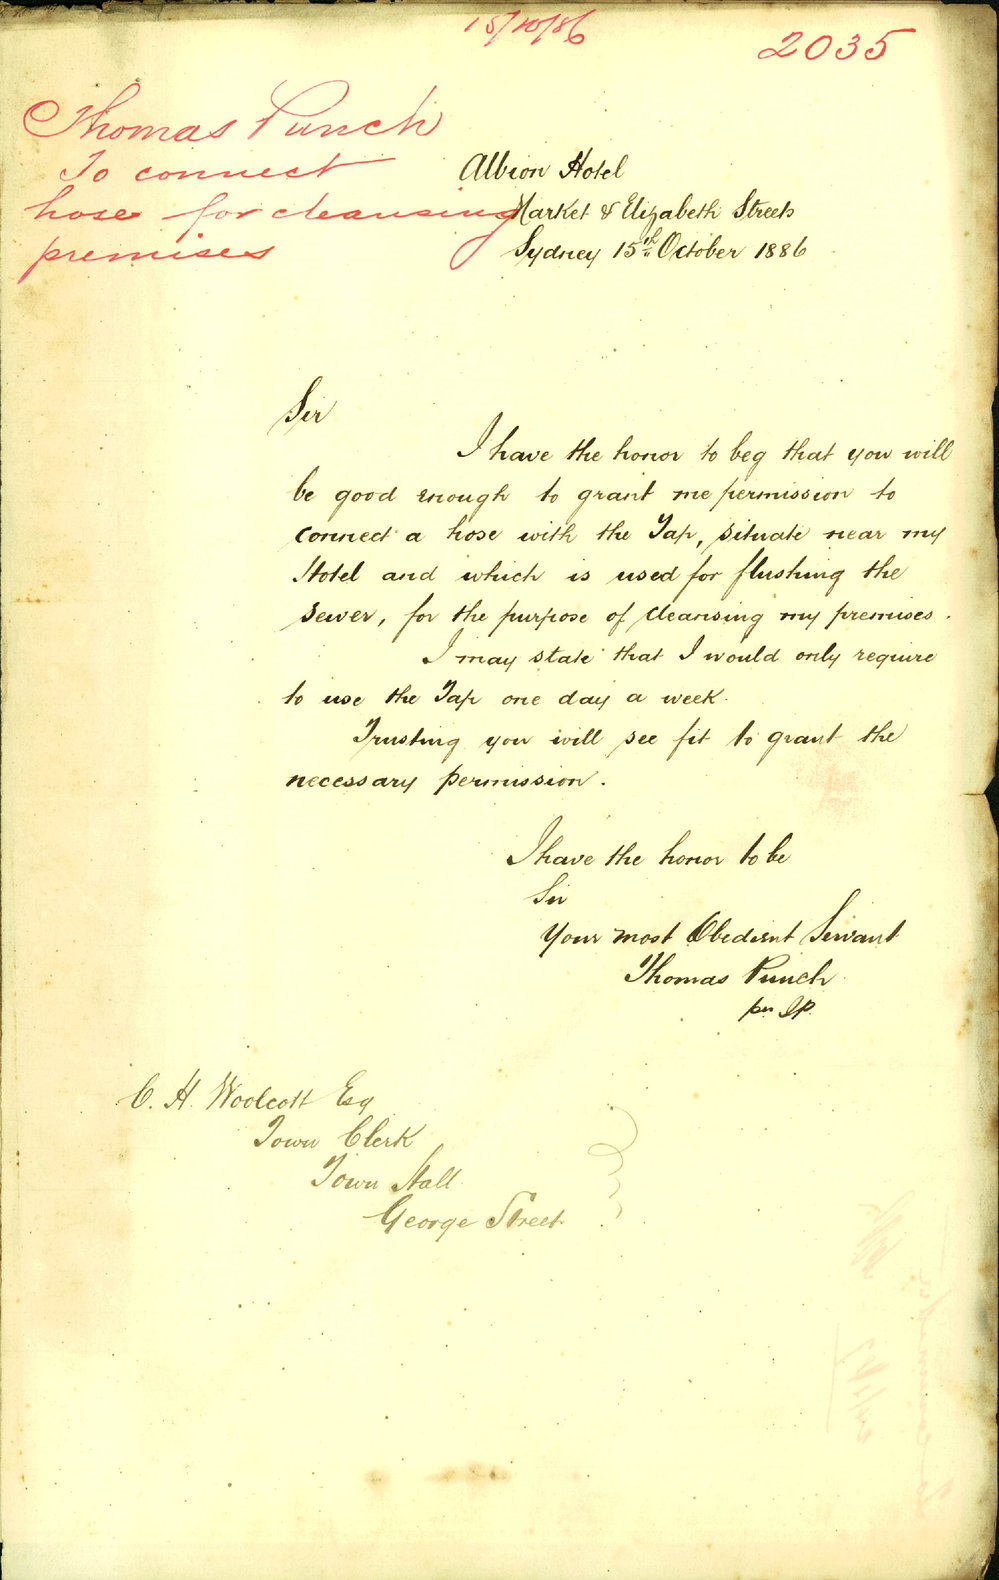 15/10/86
2035
Thomas Punch
To connect
hose for cleansing
premises
Albion Hotel
Market & Elizabeth Streets
Sydney 15th October 1886
Sir
I have the honor to beg that you will
be good enough to grant me permission to
connect a hose with the Tap, situate near my
Hotel and which is used for flushing the
sewer, for the purpose of cleansing my premises.
I may state that I would only require
to use the Tap one day a week.
Trusting you will see fit to grant the
necessary permission.
I have the honor to be
Sir
Your most Obedient Servant
Thomas Punch
per JP.
C. H. Woolcott Esq
Town Clerk
Town Hall
George Street